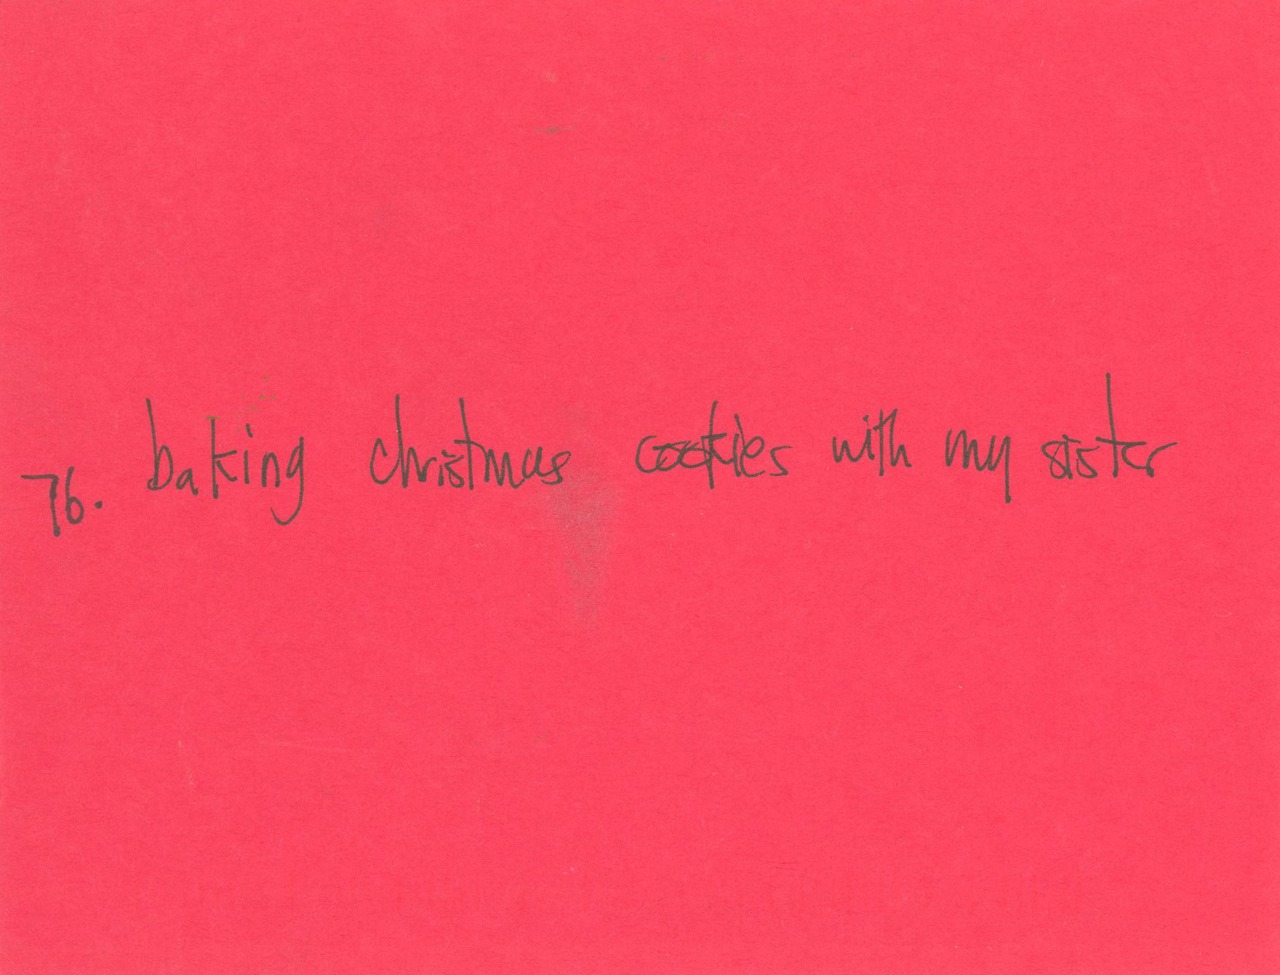 76. baking christmas cookies with my sister